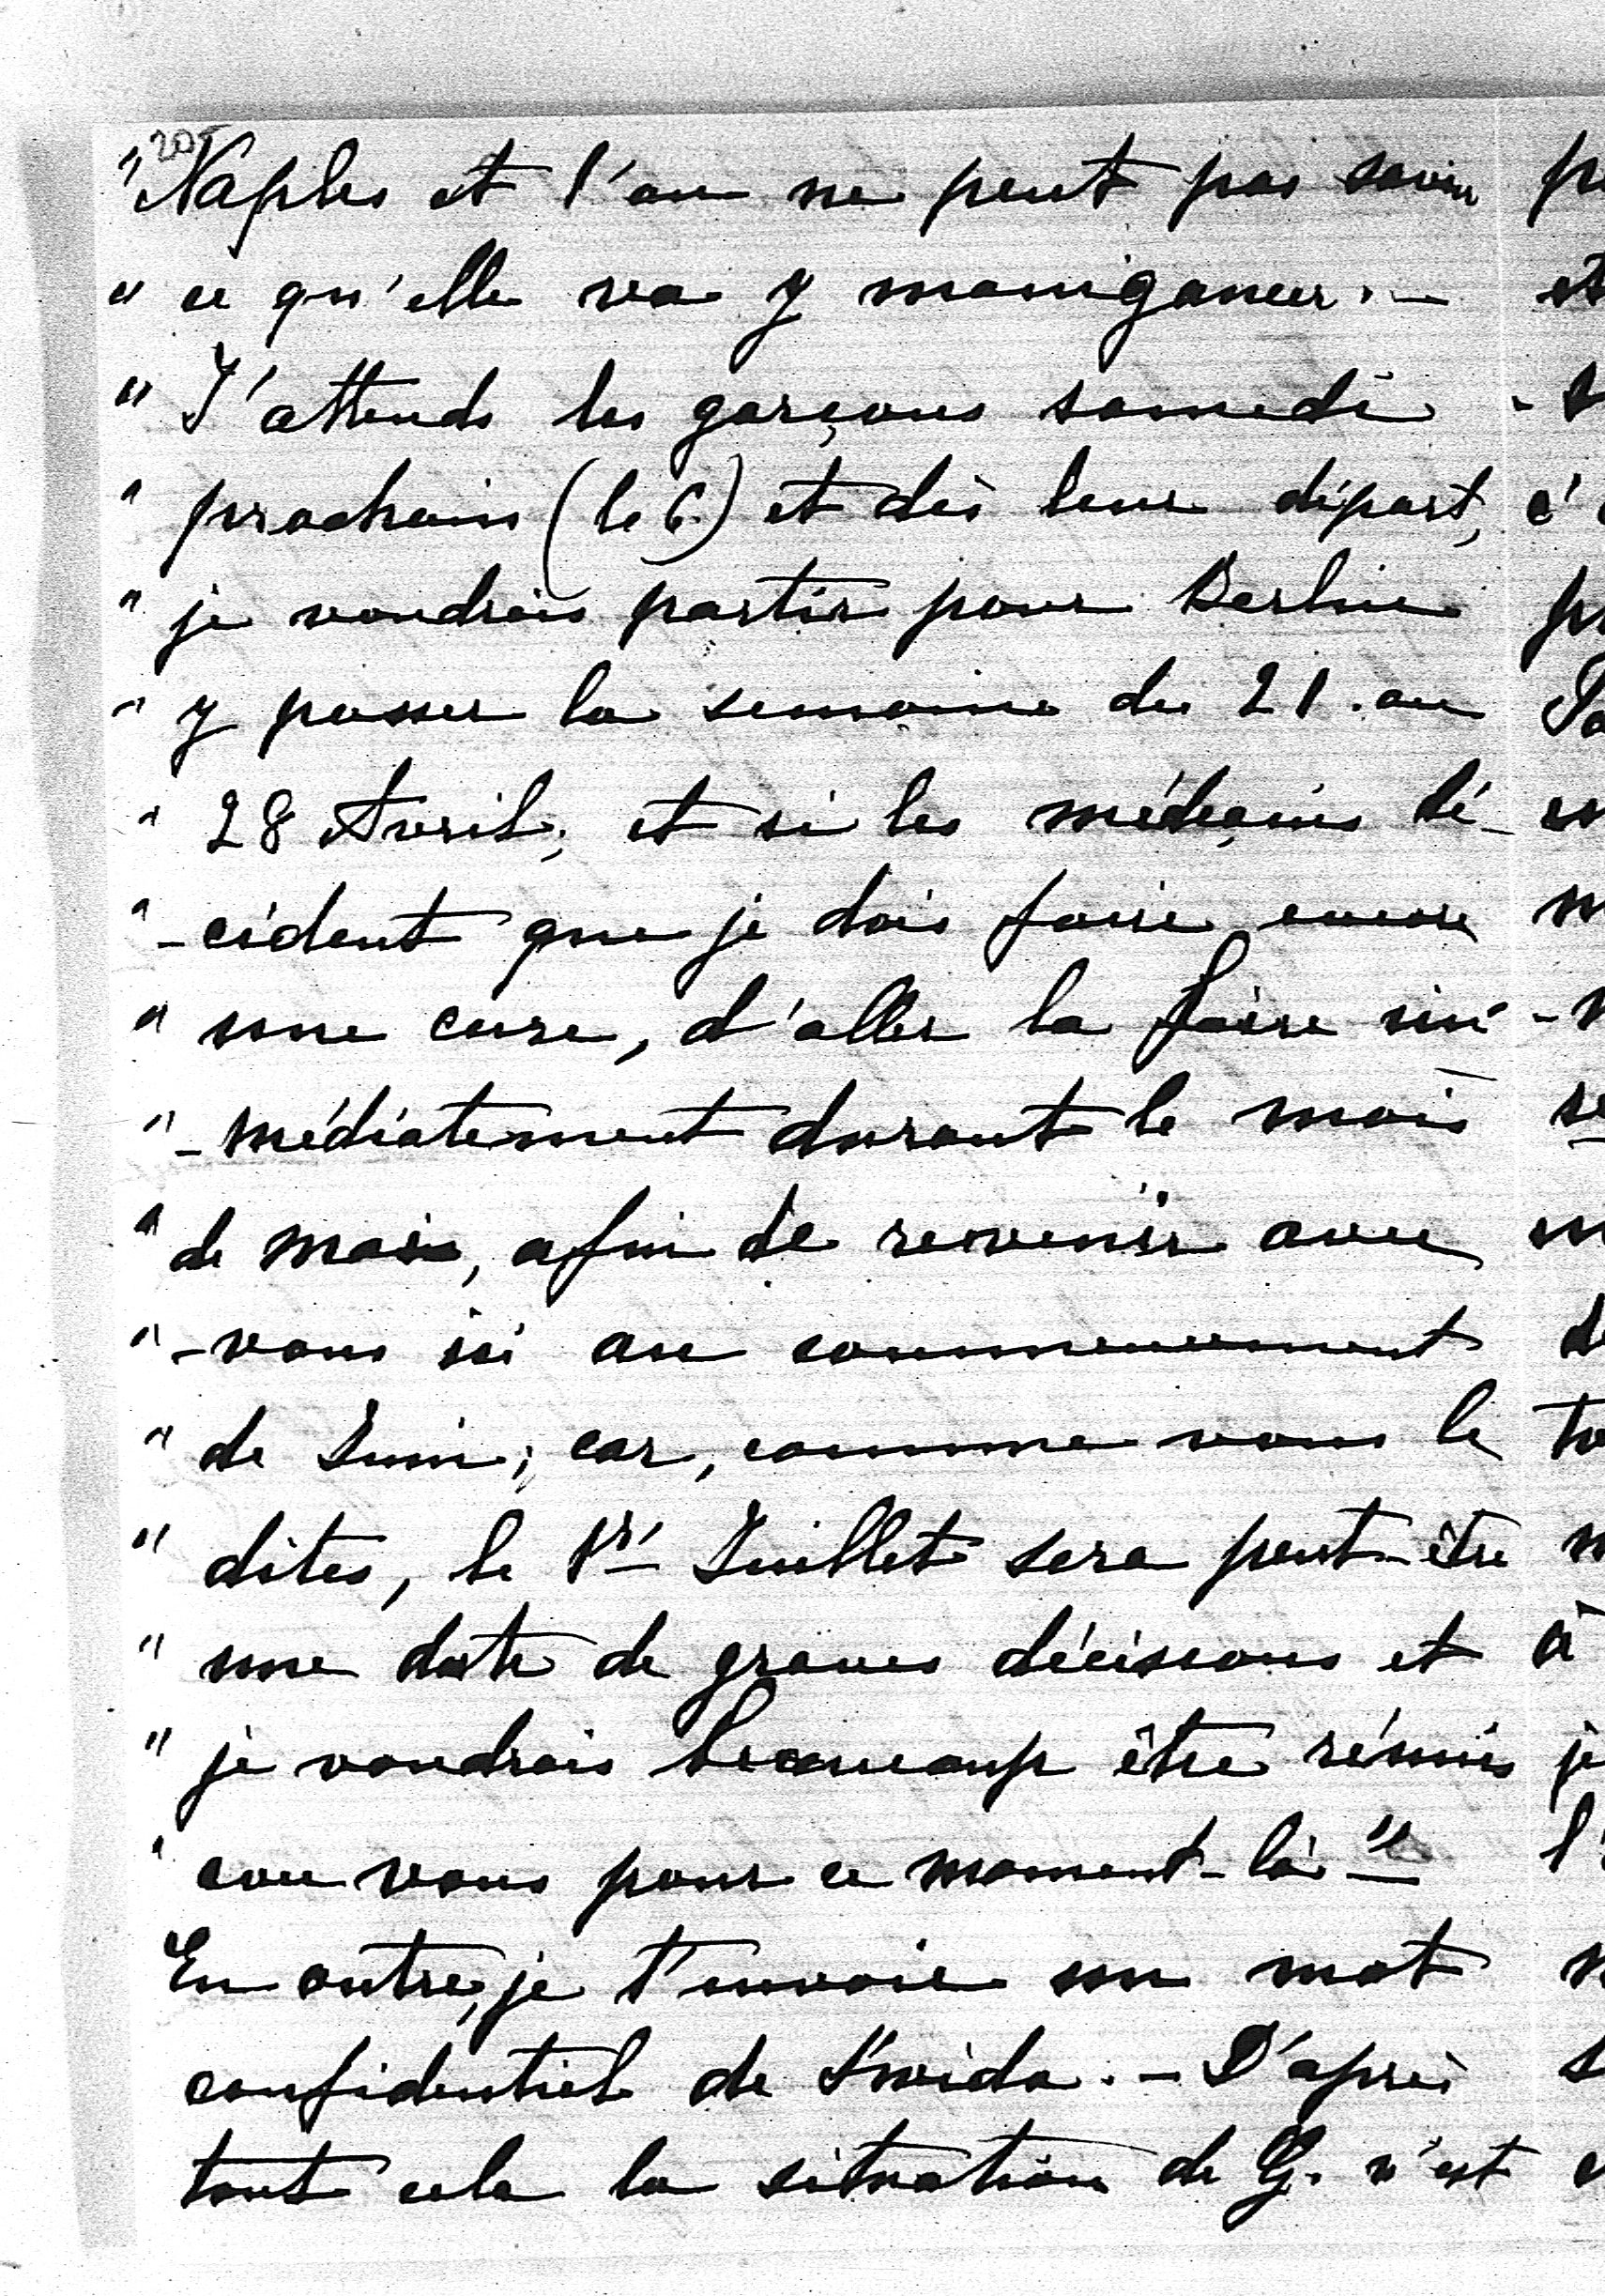 205
"Naples et l'on ne peut pas savoir
" ce qu'elle va y manigancer. —
" J'attends les garçons samedi
" prochain (le 6.) et dès leur départ,
" je voudrais partir pour Berlin
" y passer la semaine du 21. au
" 28 Avril, et si les médecins dé-
" -cident que je dois faire encore
" une cure, d'aller la faire im-
" -médiatement durant le mois
" de mai, afin de revenir avec
" -vous ici au commencement
" de Juin; car, comme vous le
" dites, le 1r Juillet sera peut-être
" une date de graves décisions et
" je voudrais beaucoup être réunis
" avec vous pour ce moment-là" —
En outre, je t'envoie un mot
confidentiel de . — D'après
tout cela la situation de G. n'est